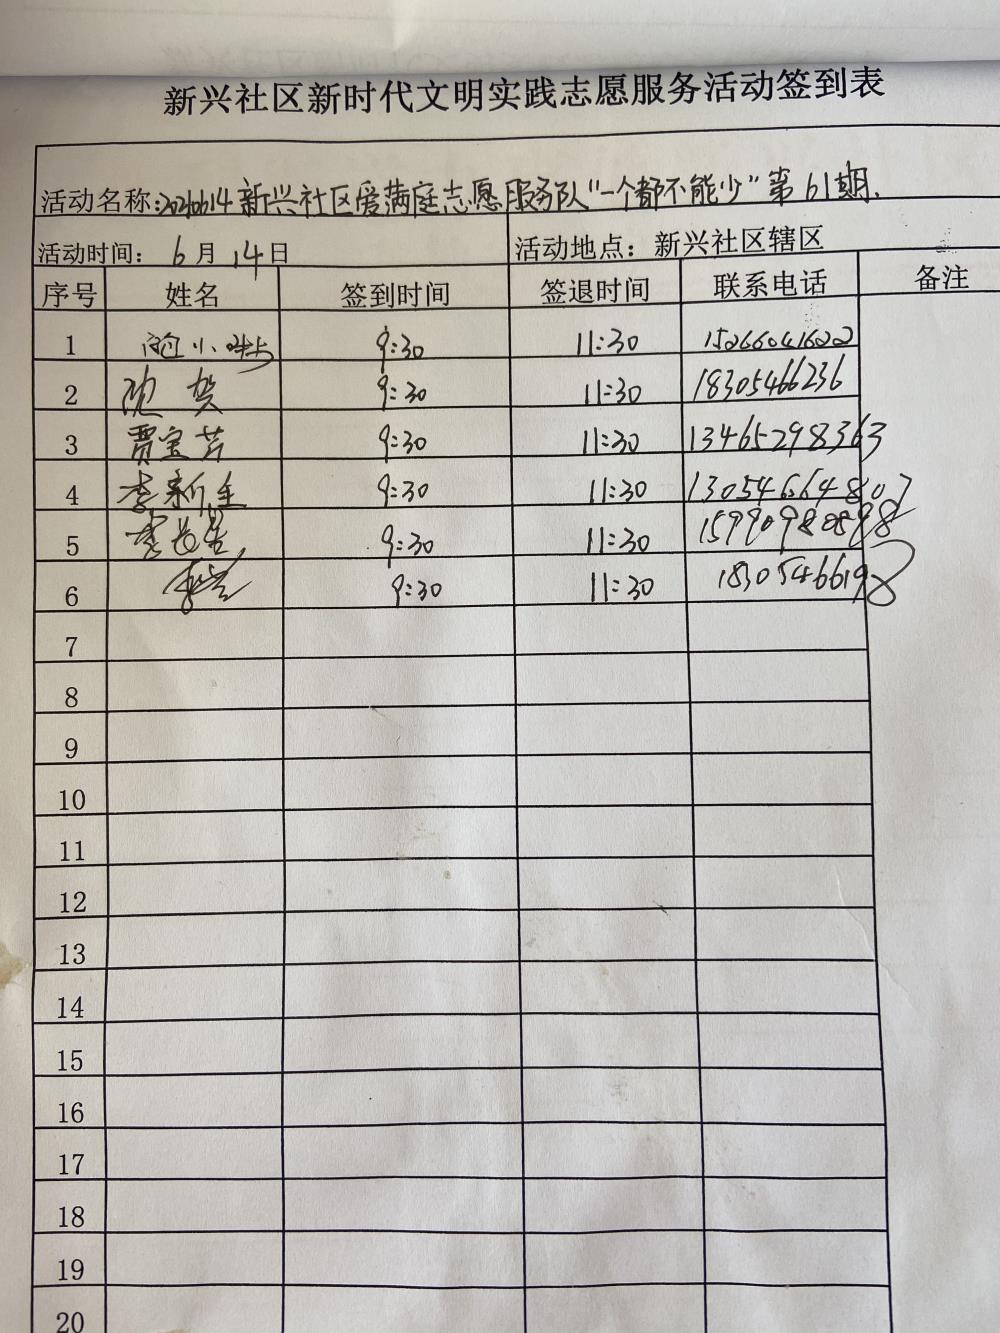 新兴社区新时代文明实践志愿服务活动签到表
活动名称:20240614新兴社区爱满庭志愿服务队“一个都不能少”第61期.
活动时间: 6月14日 活动地点: 新兴社区辖区
序号 姓名 签到时间 签退时间 联系电话 备注
1 小 9:30 11:30 15266041622
2 沈贺 9:30 11:30 18305466236
3 贾宝芳 9:30 11:30 13465298363
4 李新生 9:30 11:30 13054664807
5 9:30 11:30
6 9:30 11:30 18305466198
7
8
9
10
11
12
13
14
15
16
17
18
19
20